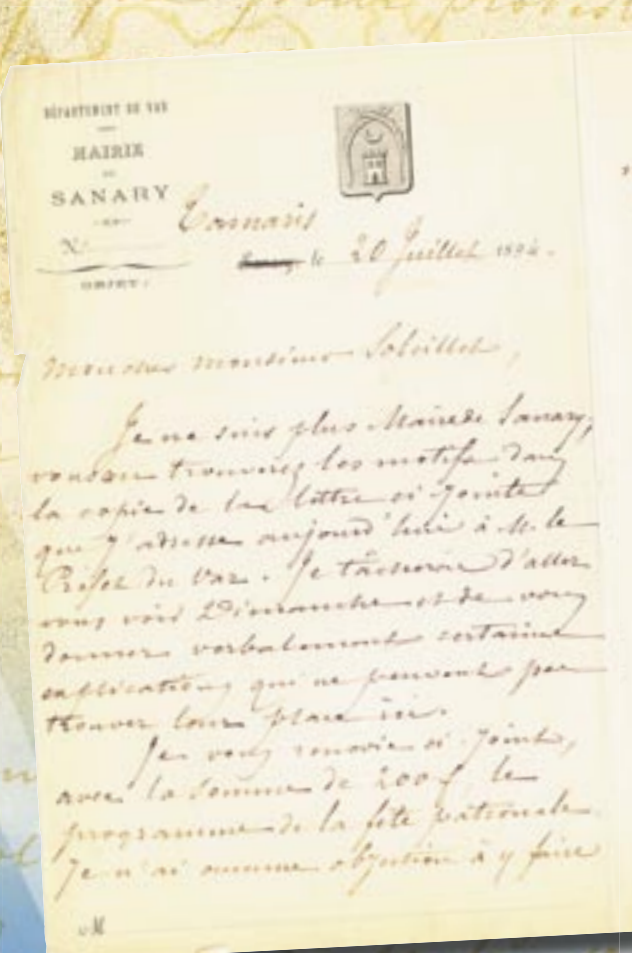 DÉPARTEMENT DU VAR
MAIRIE
DE
SANARY
N°
OBJET :
Tamaris
le 20 Juillet 1894.
Mon cher monsieur Soleillet,
Je ne suis plus Maire de Sanary,
vous en trouverez les motifs dans
la copie de la lettre ci-jointe
que j'adresse aujourd'hui à M. le
Préfet du Var. Je tâcherai d'aller
vous voir Dimanche et de vous
donner verbalement certaines
explications qui ne peuvent pas
trouver leur place ici.
Je vous renvoie ci-joint,
avec la somme de 200 f, le
programme de la fête patronale
Je n'ai aucune objection à y faire